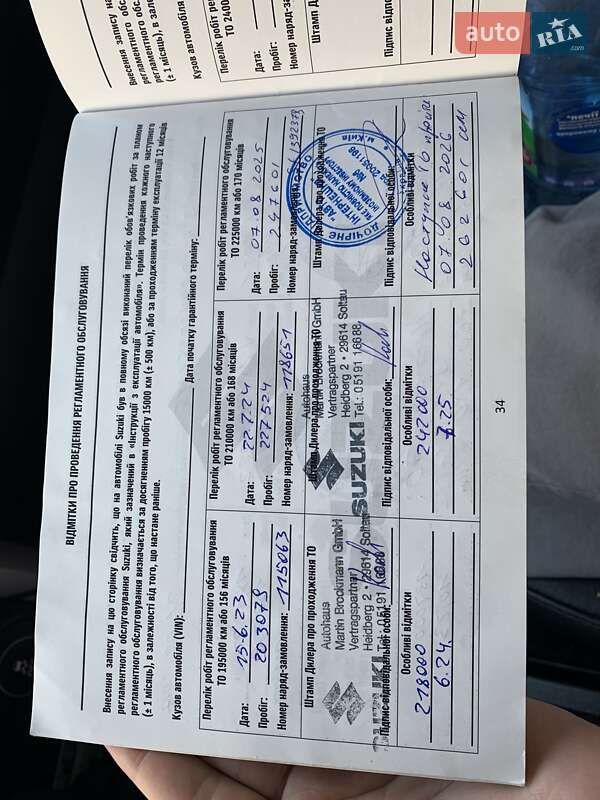 auto RIA .com
Внесення запису на
регламентного обс
регламентного обсл
(± 1 місяць), в зале
Кузов автомобіля
Перелік робіт рег
ТО 2400
Дата:
Пробіг:
Номер наряд-замо
Штамп Дил
ВІДМІТКИ ПРО ПРОВЕДЕННЯ РЕГЛАМЕНТНОГО ОБСЛУГОВУВАННЯ
Внесення запису на цю сторінку свідчить, що на автомобілі Suzuki був в повному обсязі виконаний перелік обов'язкових робіт за планом
регламентного обслуговування Suzuki, який зазначений в «Інструкції з експлуатації автомобіля». Термін проведення кожного наступного
регламентного обслуговування визначається за досягненням пробігу 15000 км (± 500 км), або за проходженням терміну експлуатації 12 місяців
(± 1 місяць), в залежності від того, що настане раніше.
Кузов автомобіля (VIN): Дата початку гарантійного терміну:
Перелік робіт регламентного обслуговування
ТО 195000 км або 156 місяців
Дата: 15-6.23
Пробіг: 203079
Номер наряд-замовлення: 115063
Штамп Дилера про проходження ТО
Autohaus
Martin Brockmann GmbH
Vertragspartner
Heidberg 2 • 29614 Soltau
SUZUKI Tel.: 05191 16688
Підпис відповідальної особи:
Особливі відмітки
218000
6.24.
Перелік робіт регламентного обслуговування
ТО 210000 км або 168 місяців
Дата: 22.7.24
Пробіг: 227524
Номер наряд-замовлення: 118651
Штамп Дилера про проходження ТО
Autohaus
Martin Brockmann GmbH
Vertragspartner
Heidberg 2 • 29614 Soltau
SUZUKI Tel.: 05191 16688
Підпис відповідальної особи:
Особливі відмітки
242000
7.25
Перелік робіт регламентного обслуговування
ТО 225000 км або 170 місяців
Дата: 07.08 2025
Пробіг: 247601
Номер наряд-замовлення: 392379
Штамп Дилера про проходження ТО
ДОЧІРНЄ
м. Київ
Підпис відповідальної особи:
Особливі відмітки
Наступне ТО
07 08 2026
262601 км
34